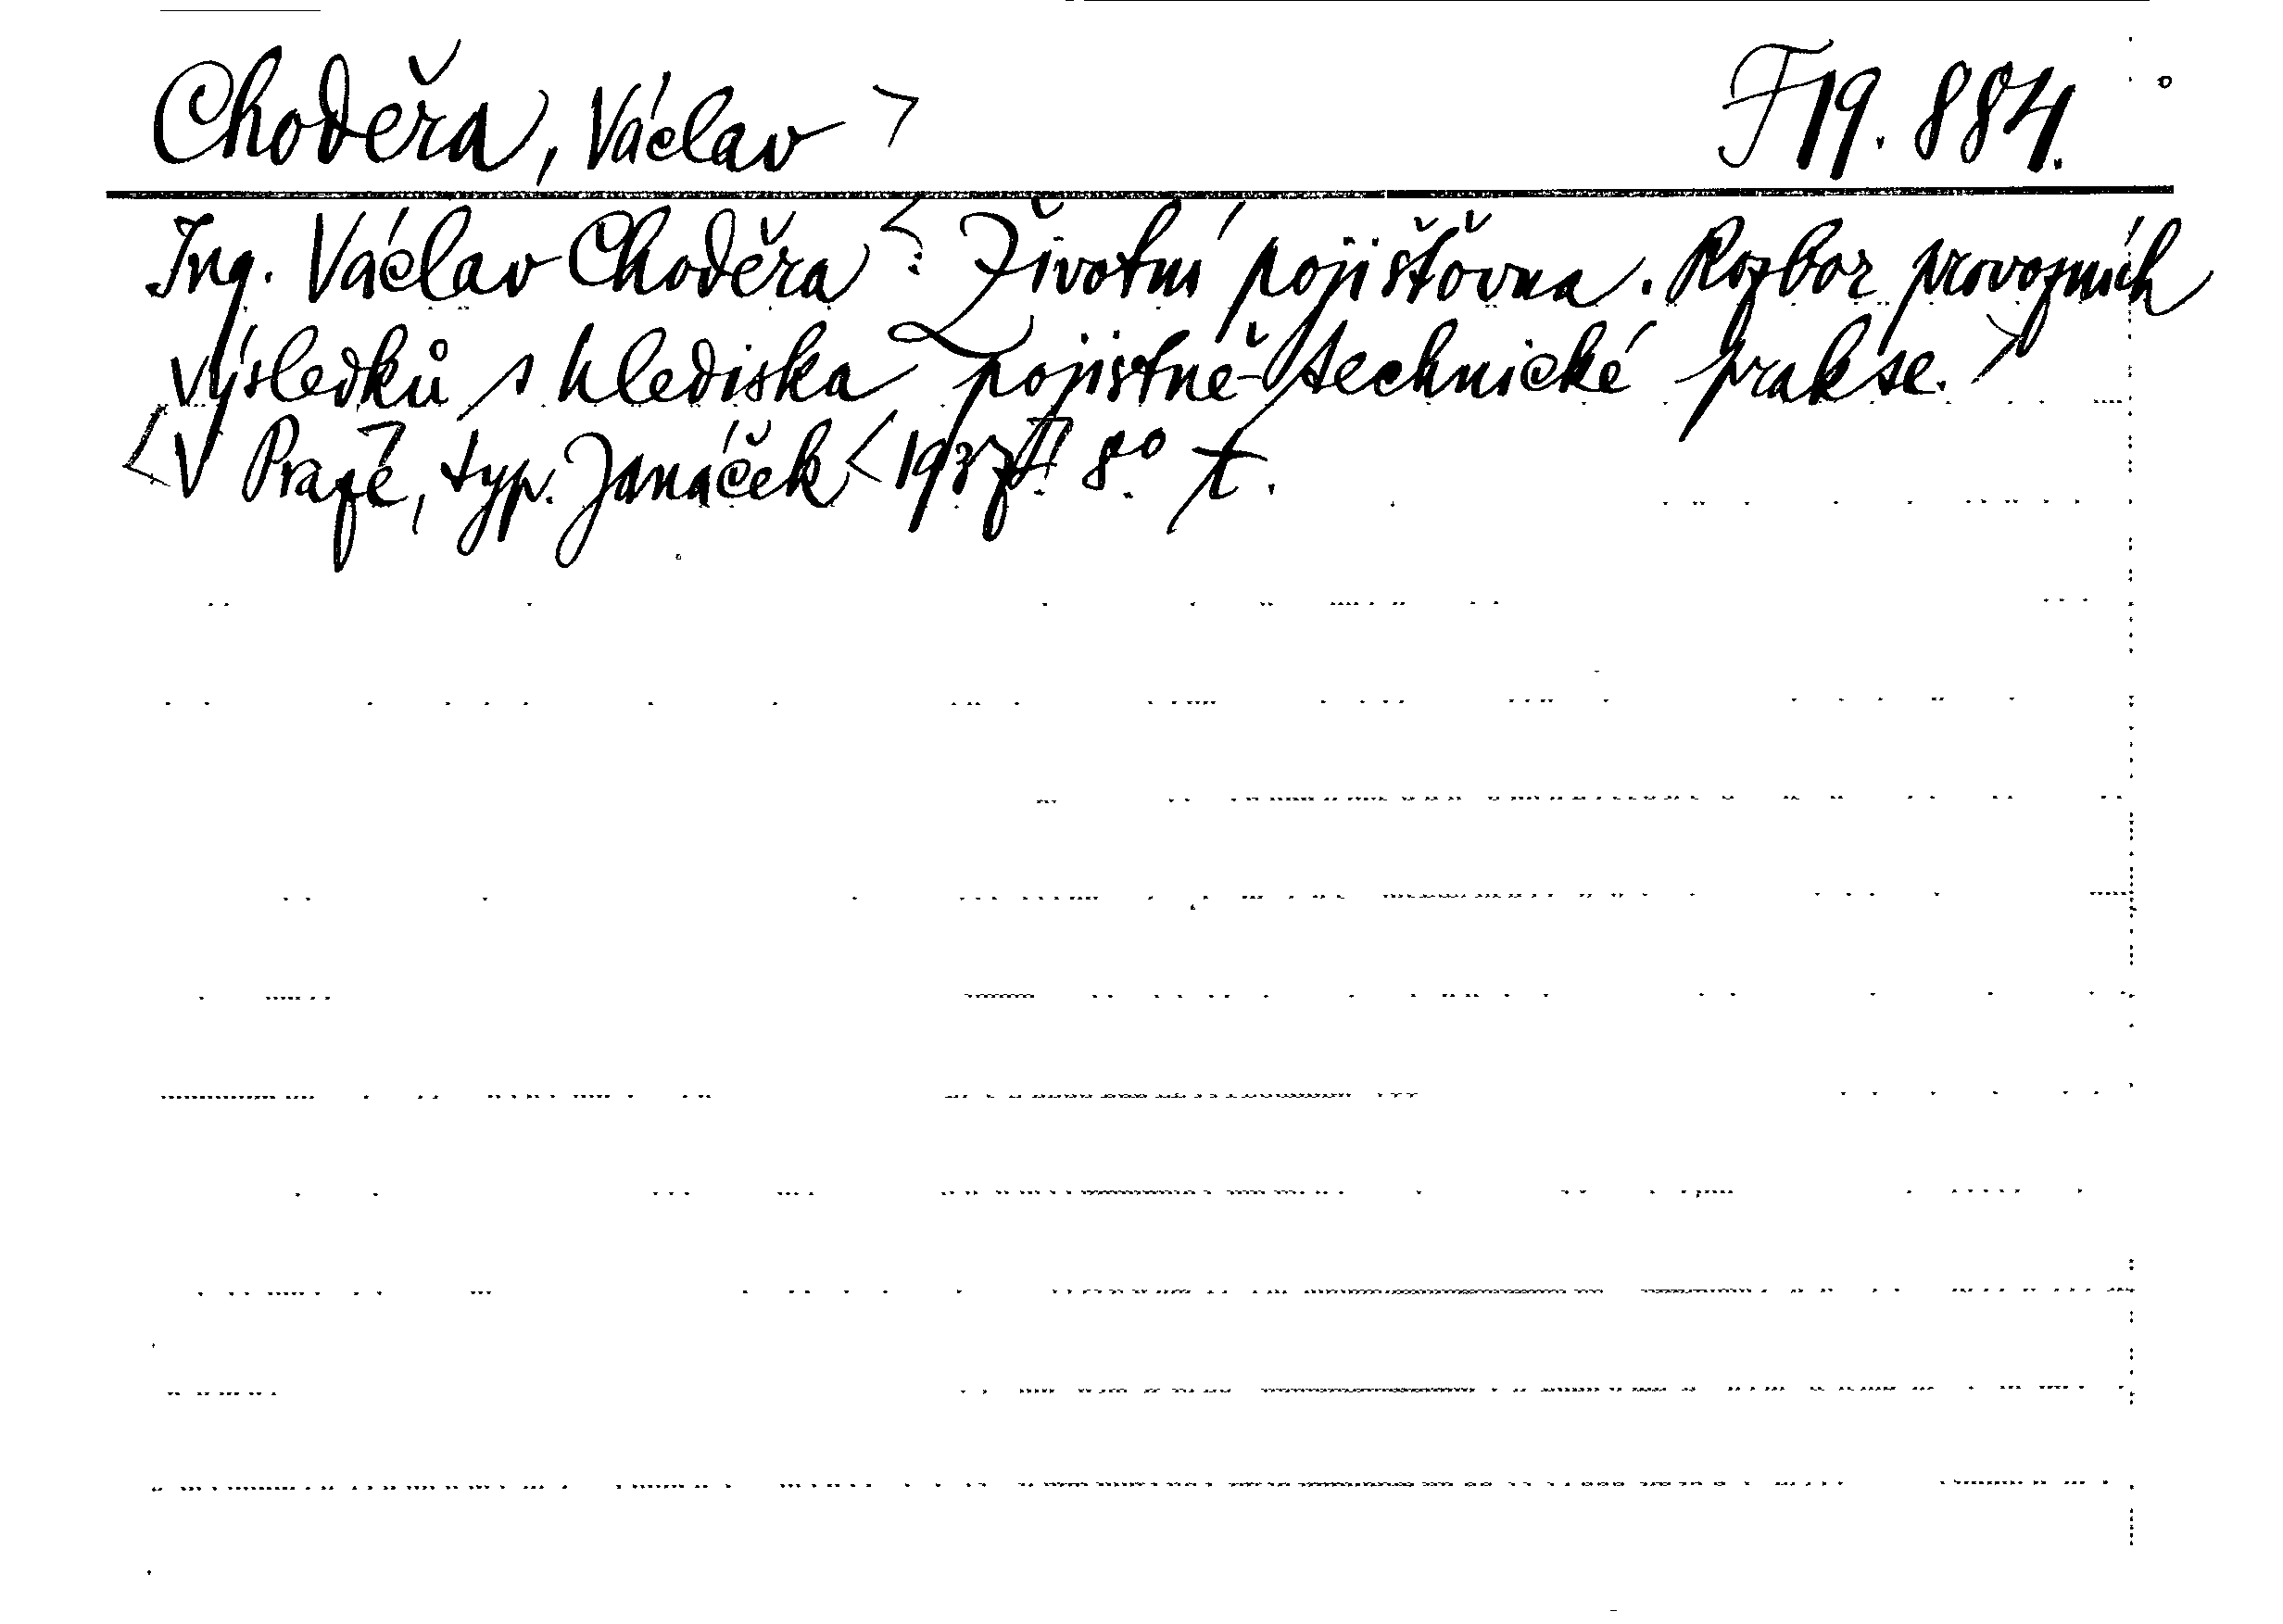 Choděra, Václav > F 19.884.
Ing. Václav Choděra <: Životní pojišťovna. Rozbor provozních
výsledků s hlediska pojistně-technické prakse. >
<V Praze, typ. Janáček < 1937 8° t.